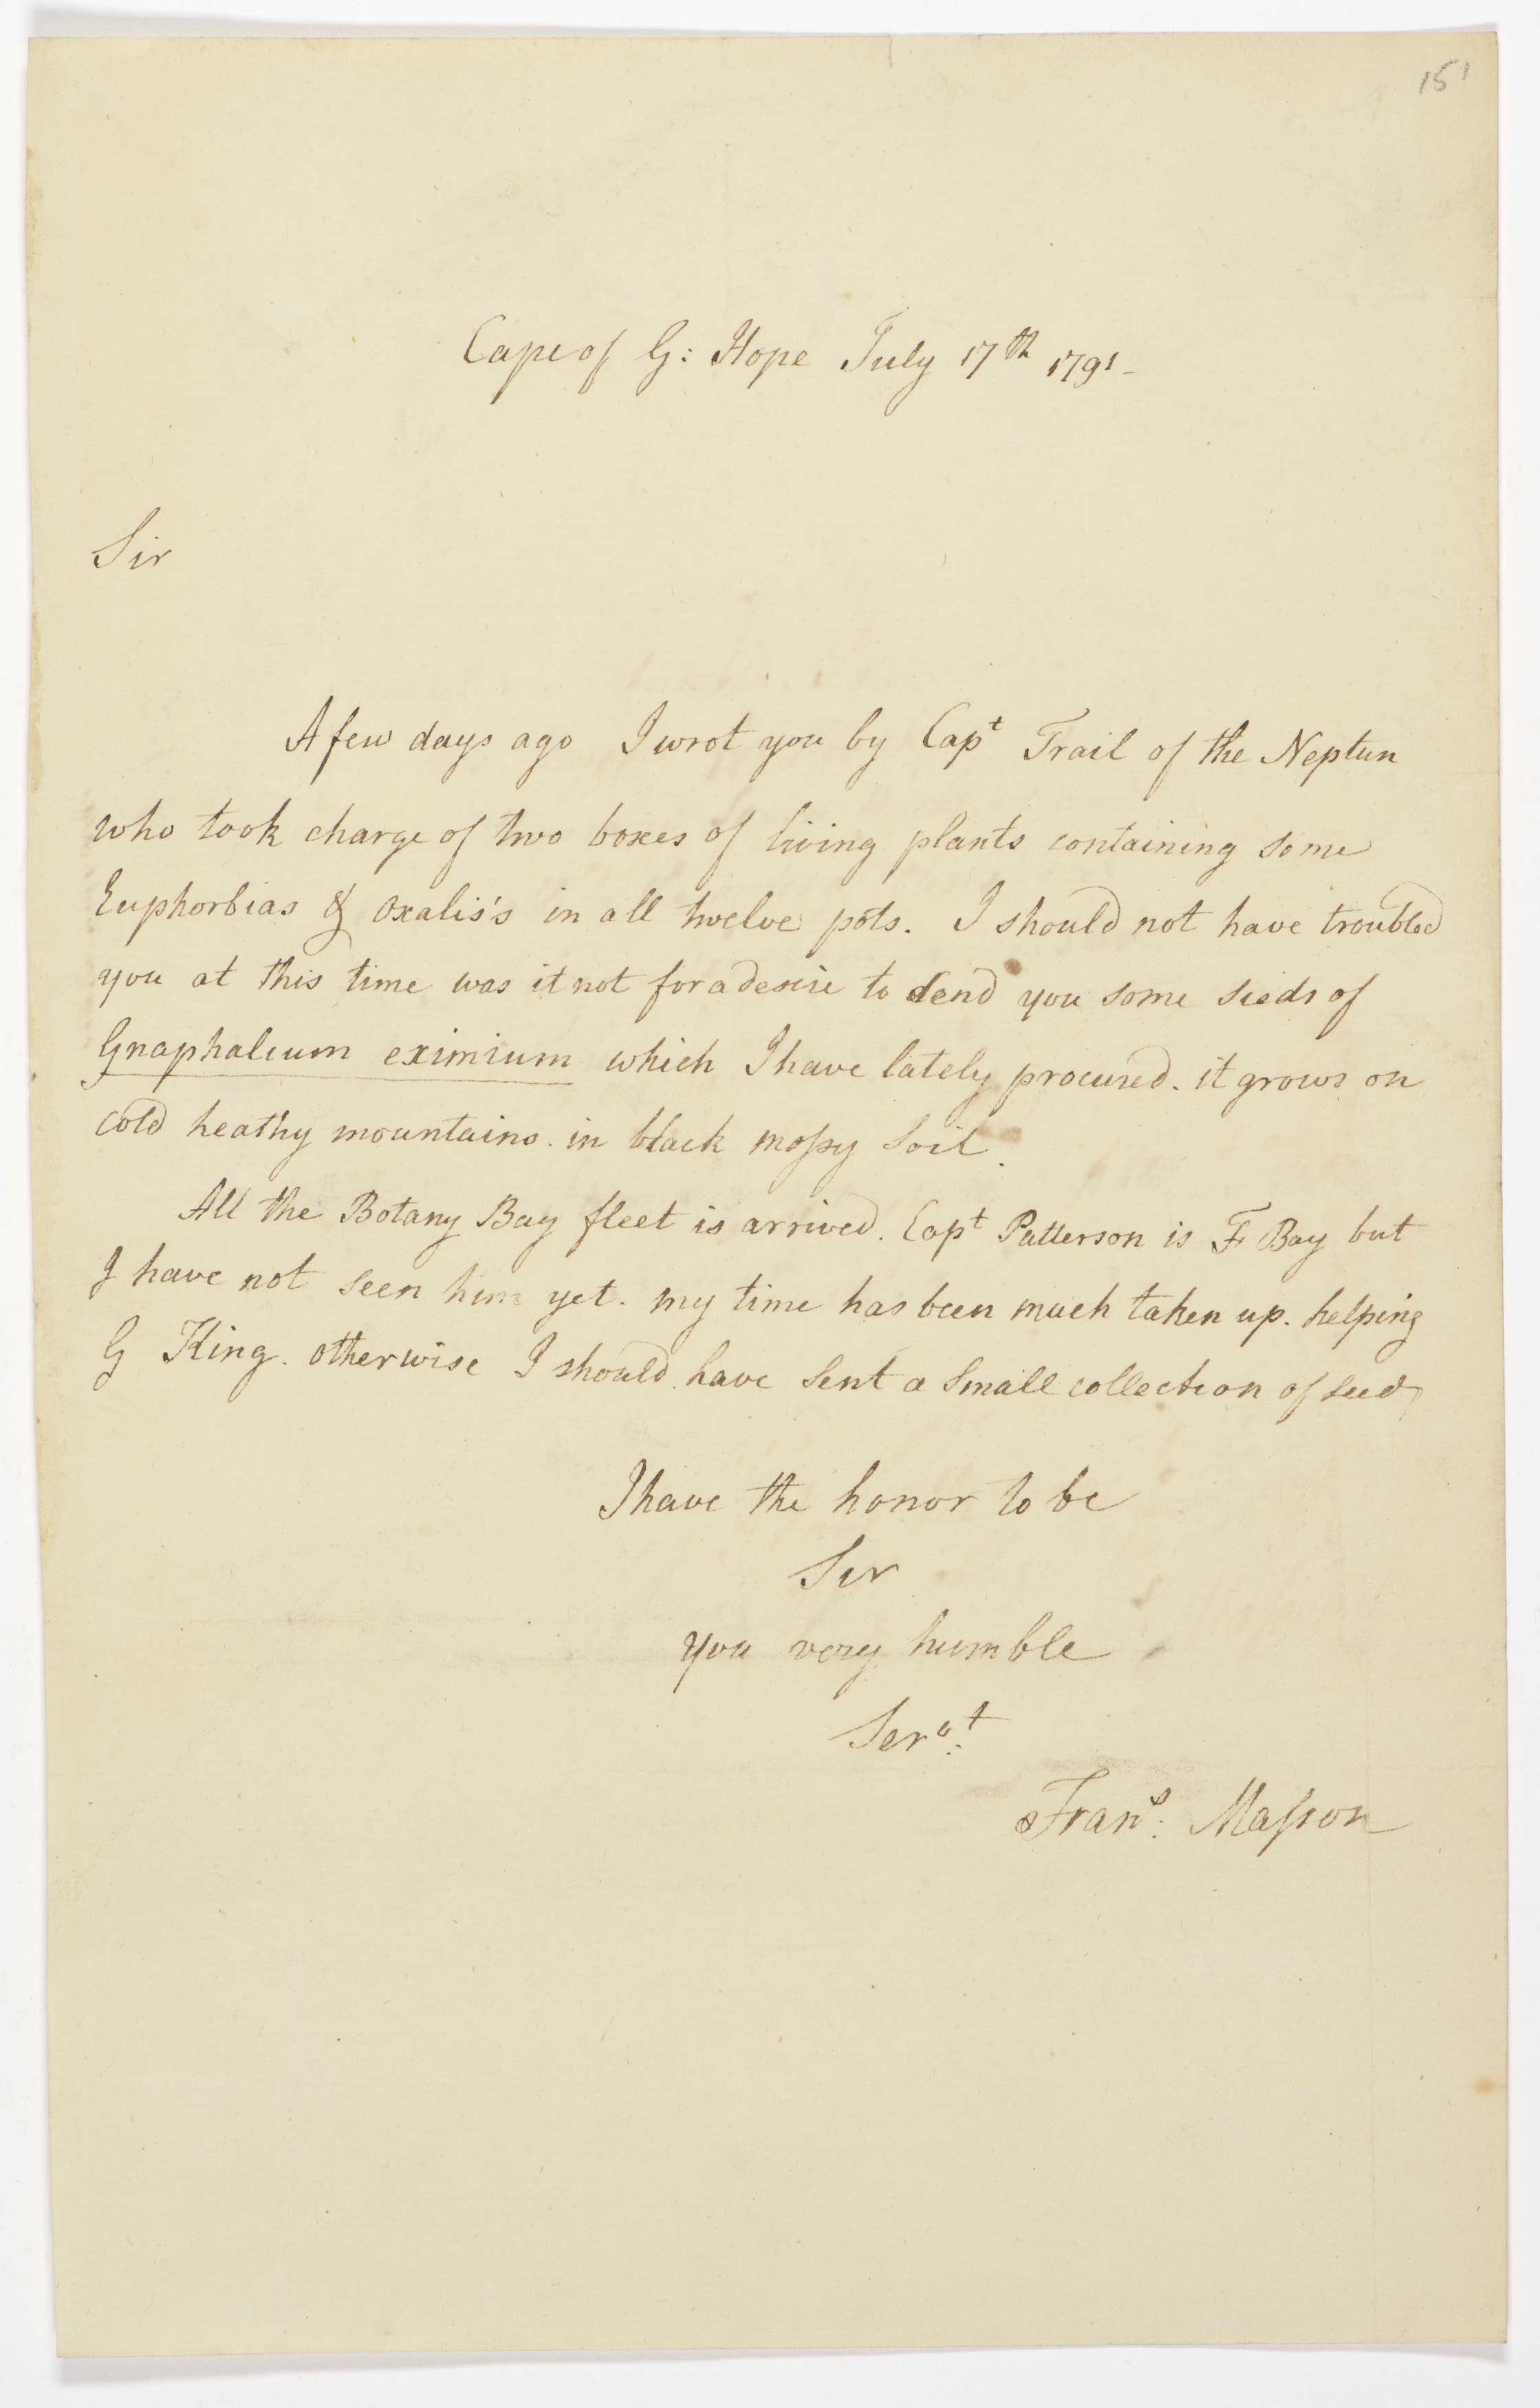 151
Cape of G: Hope July 17th 1791-
Sir
A few days ago I wrot you by Capt Trail of the Neptun
who took charge of two boxes of living plants containing some
Euphorbias & oxalis's in all twelve pots. I should not have troubled
you at this time was it not for a desire to send you some seeds of
Gnaphalium eximium which I have lately procured. it grows on
cold heathy mountains. in black mossy soil.
All the Botany Bay fleet is arrived. Capt Patterson is F Bay but
I have not seen him yet. my time has been much taken up. helping
G King. otherwise I should have sent a small collection of seeds
I have the honor to be
Sir
you very humble
Servt:
Frans: Masson